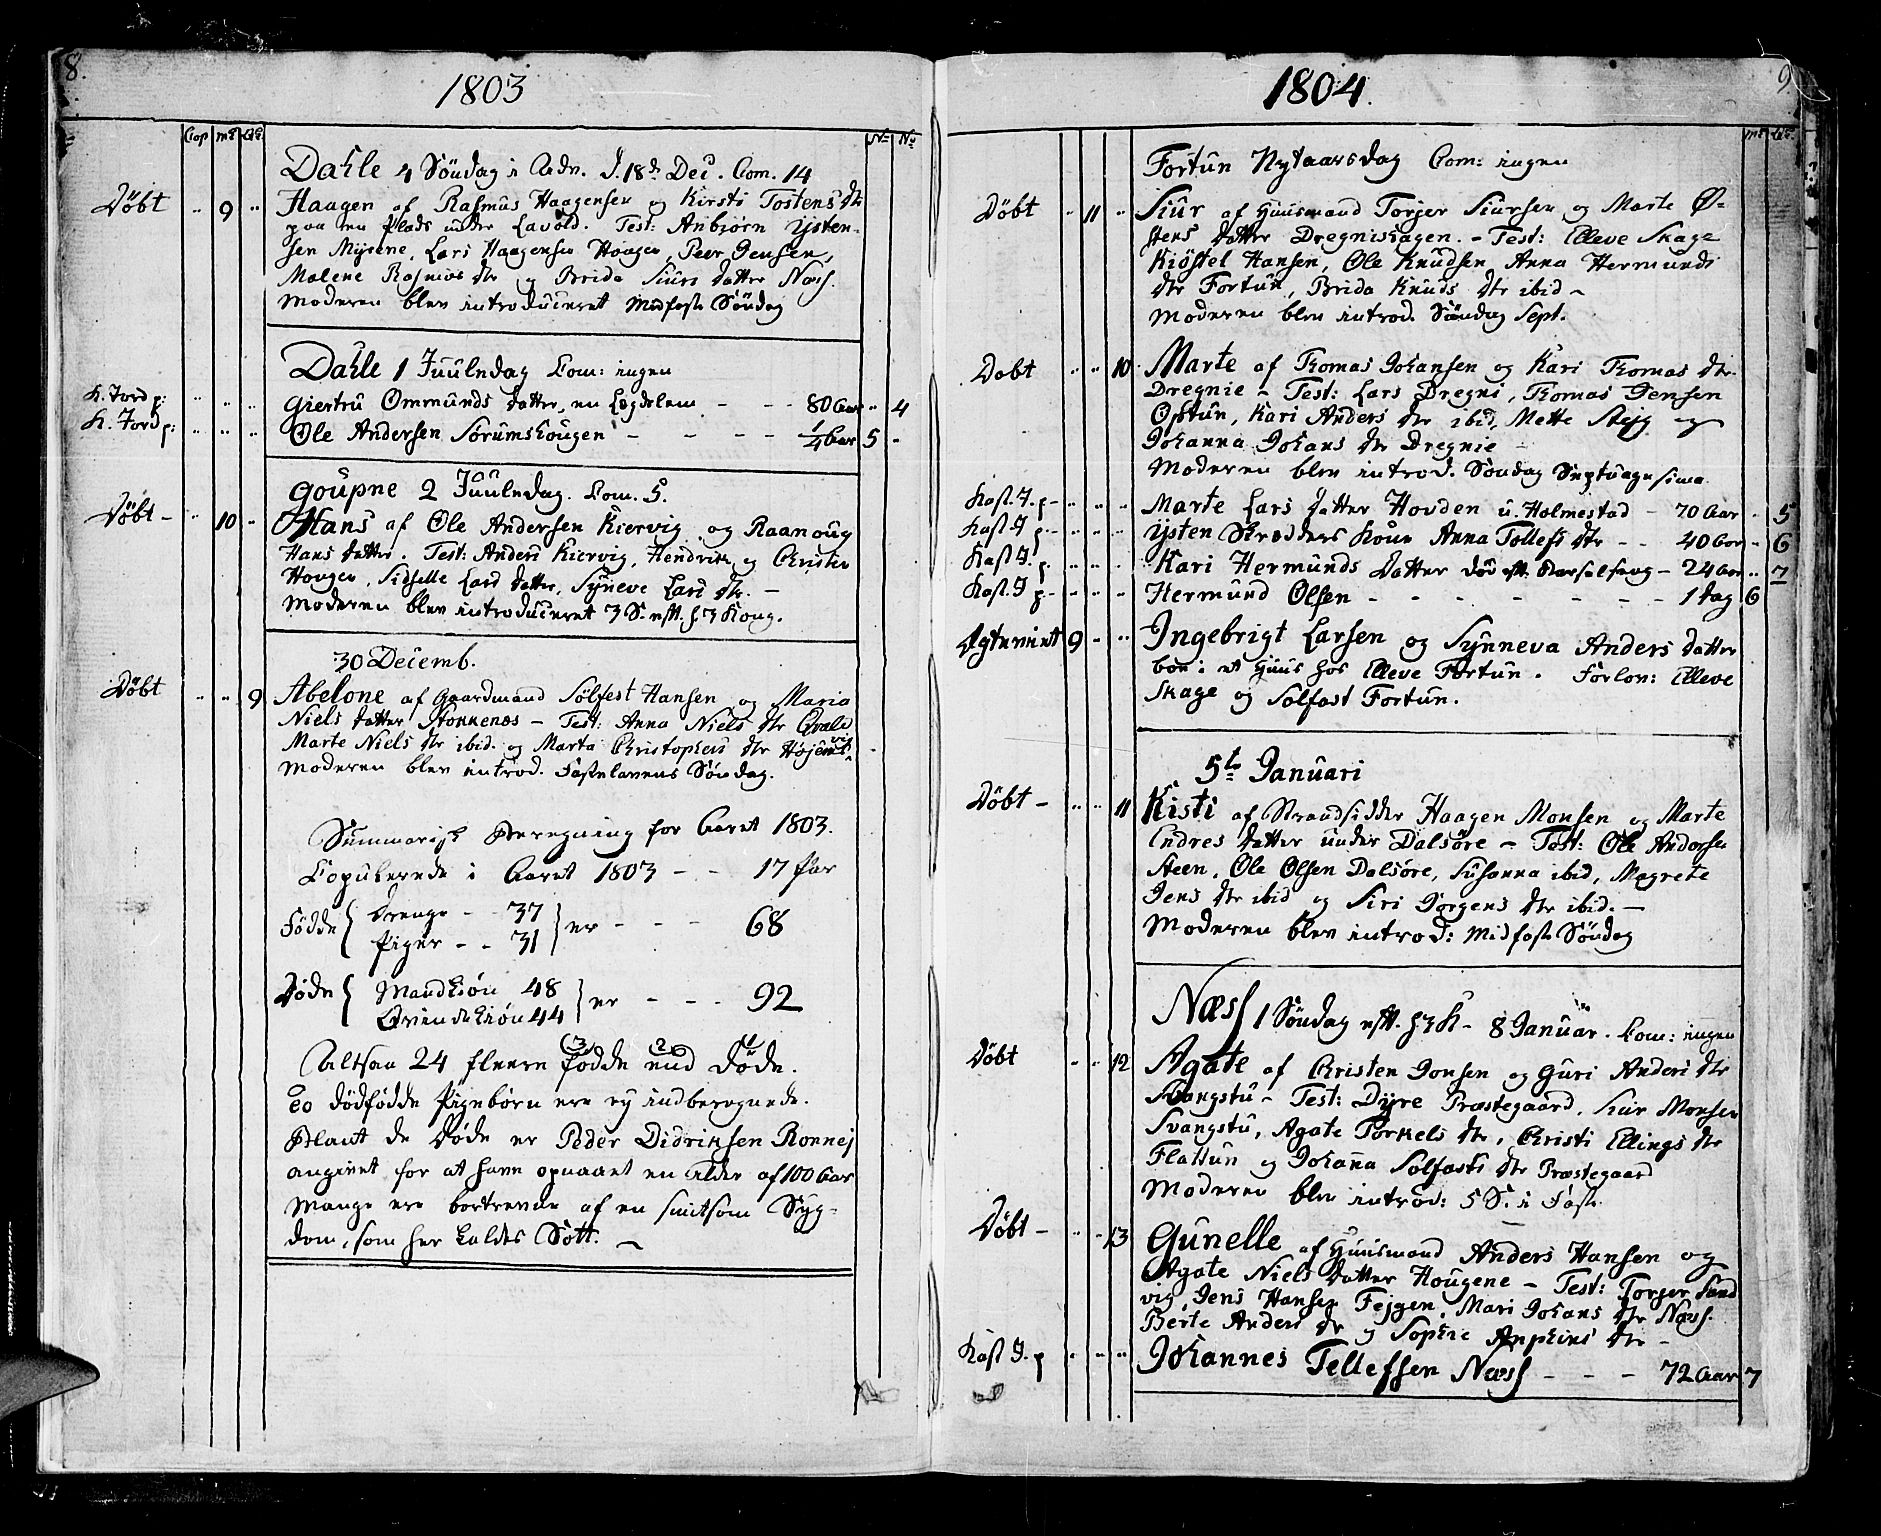 8.
1803
Cop m:k Qv:
No No
Dahle 4 Söndag i Adv. d. 18de Dec. Com. 14
Döbt .. 9 .. Haagen af Rasmus Haagensen og Kirsti Tostens dtr
paa en Plads under Lavold. Test: Anbjörn Ysten-
sen Myrene, Lars Haagensen Houger, Peer Jensen,
Malene Rasmus dtr og Brida Siurs datter Næss.
Moderen blev introduceret Midfaste Söndag
Dahle 1 Juuledag Com: ingen
K. Jord p: .. .. .. Giertru Ommunds datter, en Lægdelem - - - 80 Aar .. 4
K. Jord p: .. .. .. Ole Andersen Sorumshougen - - - - 1/4 Aar 5 -
Goupne 2 Juuledag. Com. 5.
Döbt - .. 10 .. Hans af Ole Andersen Kiervig og Raanoug
Hans datter. Test: Anders Kiervig, Hendrik og Christen
Houger, Sidselle Lars datter, Syneve Lars dtr. -
Moderen blev introduceret 3 S. eft. H 3 Kong.
30 Decemb.
Döbt .. .. 9 Abelone af Gaardmand Sölfest Hansen og Maria
Niels datter Stokkenæs - Test: Anna Niels dtr Qvale
Marte Niels dtr ibid. og Marta Christophers dtr Höjems
vig
Moderen blev introd. Fastelavens Söndag.
Summarisk Beregning for Aaret 1803.
Copulerede i Aaret 1803 - - 17 Par
Födde { Drenge - - 37
Piger - - 31 } er - - - 68
Döde { Mandkiön 48
Qvindekiön 44 } er - - - 92
Altsaa 24 fleere födde end döde.
3 2 1
20 dödfödde Pigebörn ere ey indberegnede.
Blant de Döde er Peder Didriksen Ronnej
angivet for at have opnaaet en Alder af 100 Aar
Mange ere bortrevne af en smitsom Syg-
dom, som her kaldes Sött.
9
1804.
m:k Qv:
Fortun Nytaarsdag Com: ingen
Döbt .. 11 .. Siur af Huusmand Torjer Siursen og Marte Ø-
stens datter Dregnishagen. - Test: Elleve Skage
Kiöstel Hansen, Ole Knudsen, Anna Hermunds
dtr Fortun, Brida Knuds dtr ibid -
Moderen blev introd. Söndag Sept.
Döbt .. .. 10 Marte af Thomas Johansen og Kari Thomas dtr.
Dregnie - Test: Lars Dregni, Thomas Jensen
Optun, Kari Anders dtr ibid, Mette og
Johanna Johans dtr Dregnie
Moderen blev introd. Söndag Septuagesima.
Kast. J. p - .. .. Marte Lars datter Hovden u. Holmestad - 70 Aar . 5
Kast J p - .. .. Ysten Skredders Kone Anna Tollefs dtr - - 40 Aar .. 6
Kast J. p. .. .. Kari Hermunds datter död eft. Barselseng - 24 Aar .. 7
Kast. J p - .. .. Hermund Olsen - - - - - - - 1 dag 6
Ægteviet 9 - .. Ingebrigt Larsen og Synneva Anders datter
boe i et Huus hos Elleve Fortun. Forlov: Elleve
Skage og Solfast Fortun.
5te Januari
Döbt - .. .. 11 Kisti af Strandsidder Haagen Monsen og Marte
Endres datter under Dalsöre - Test: Ole Andersen
Steen, Ole Olsen Dalsöre, Susanna ibid, Magrete
Jens dtr ibid og Siri Jörgens dtr ibid. -
Moderen blev introd: Midfaste Söndag
Næss 1 Söndag eft. H 3 K - 8 Januar. Com: ingen
Döbt .. 12 Agate af Christen Jonsen og Guri Anders dtr
Svangstu - Test: Dyre Præstegaard, Siur Monsen
Svangstu, Agate Torkels dtr, Christi Ellings dtr
Flattun og Johana Solfasts dtr Præstegaard
Moderen blev introd: 5 S. i Faste.
Döbt - .. - 13 Gunelle af Huusmand Anders Hansen og
Agate Niels datter Hougene - Test: Torger Sand
vig, Jens Hansen Fejgen, Mari Johans dtr Næss.
Berte Anders dr og Sophie Anphins dtr -
Kast J. p . .. .. Johannes Tellefsen Næss - - - 72 Aar 7